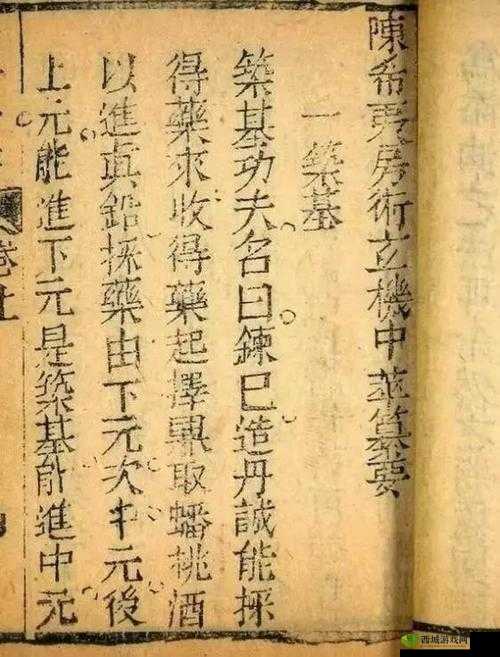 陳希夷房術玄機中萃纂要
一築基
築基功夫名曰鍊己造丹誠能採
得藥來收得藥起擇鼎取蟠桃酒
以進眞鉛採藥由下元次中元後
上元能進下元是築基能進中元
西城游戏网